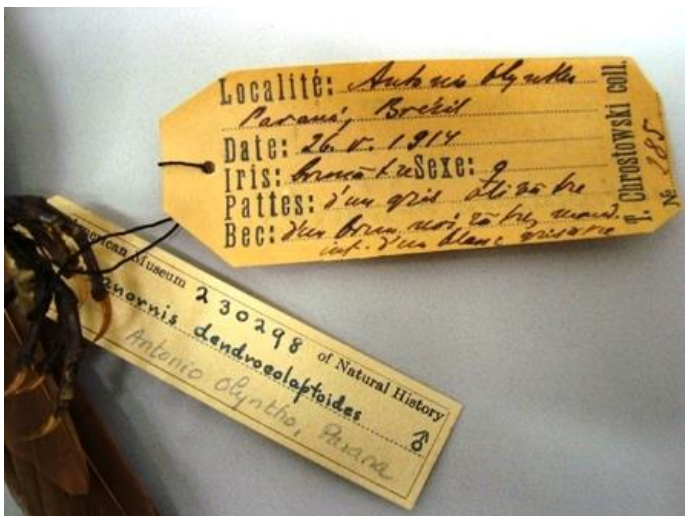 Localité: Antonio Olyntho
Paraná, Brésil
Date: 26. V. 1914
Iris: brunâtre Sexe:
Pattes: d'un gris olivâtre
Bec: d'un brun noirâtre, mand.
inf. d'un blanc grisâtre
T. Chrostowski coll.
№ 285
American Museum 230298 of Natural History
anornis dendrocolaptoides
♂
Antonio Olyntho, Parana